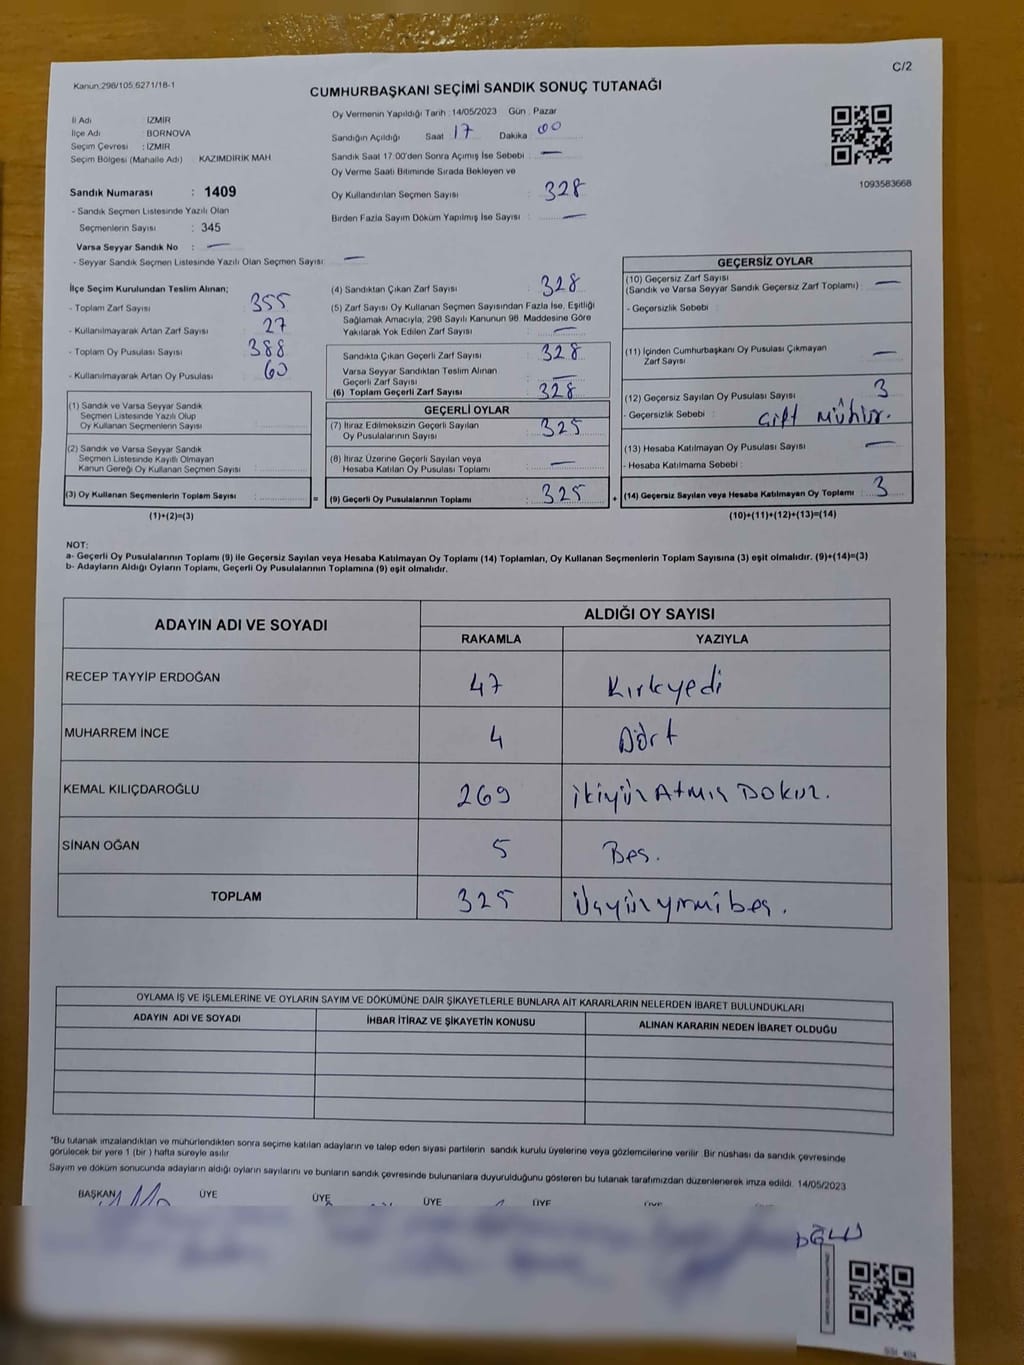 C/2
Kanun:298/105,6271/18-1
CUMHURBAŞKANI SEÇİMİ SANDIK SONUÇ TUTANAĞI
İl Adı : İZMİR
İlçe Adı : BORNOVA
Seçim Çevresi : İZMİR
Seçim Bölgesi (Mahalle Adı) : KAZIMDİRİK MAH
Sandık Numarası : 1409
- Sandık Seçmen Listesinde Yazılı Olan
Seçmenlerin Sayısı : 345
Varsa Seyyar Sandık No : —
- Seyyar Sandık Seçmen Listesinde Yazılı Olan Seçmen Sayısı: —
Oy Vermenin Yapıldığı Tarih : 14/05/2023 Gün : Pazar
Sandığın Açıldığı Saat 17 Dakika 00
Sandık Saat 17.00'den Sonra Açımış İse Sebebi : —
Oy Verme Saati Bitiminde Sırada Bekleyen ve
Oy Kullandırılan Seçmen Sayısı : 328
Birden Fazla Sayım Döküm Yapılmış İse Sayısı : —
1093583668
İlçe Seçim Kurulundan Teslim Alınan;
- Toplam Zarf Sayısı : 355
- Kullanılmayarak Artan Zarf Sayısı : 27
- Toplam Oy Pusulası Sayısı : 388
- Kullanılmayarak Artan Oy Pusulası : 60
(1) Sandık ve Varsa Seyyar Sandık
Seçmen Listesinde Yazılı Olup
Oy Kullanan Seçmenlerin Sayısı :
(2) Sandık ve Varsa Seyyar Sandık
Seçmen Listesinde Kayıtlı Olmayan
Kanun Gereği Oy Kullanan Seçmen Sayısı :
(3) Oy Kullanan Seçmenlerin Toplam Sayısı : =
(1)+(2)=(3)
(4) Sandıktan Çıkan Zarf Sayısı : 328
(5) Zarf Sayısı Oy Kullanan Seçmen Sayısından Fazla İse, Eşitliği
Sağlamak Amacıyla, 298 Sayılı Kanunun 98. Maddesine Göre
Yakılarak Yok Edilen Zarf Sayısı : —
Sandıkta Çıkan Geçerli Zarf Sayısı : 328
Varsa Seyyar Sandıktan Teslim Alınan
Geçerli Zarf Sayısı : —
(6) Toplam Geçerli Zarf Sayısı : 328
GEÇERLİ OYLAR
(7) İtiraz Edilmeksizin Geçerli Sayılan
Oy Pusulalarının Sayısı : 325
(8) İtiraz Üzerine Geçerli Sayılan veya
Hesaba Katılan Oy Pusulası Toplamı : —
(9) Geçerli Oy Pusulalarının Toplamı : 325 +
GEÇERSİZ OYLAR
(10) Geçersiz Zarf Sayısı
(Sandık ve Varsa Seyyar Sandık Geçersiz Zarf Toplamı) : —
- Geçersizlik Sebebi :
(11) İçinden Cumhurbaşkanı Oy Pusulası Çıkmayan
Zarf Sayısı : —
(12) Geçersiz Sayılan Oy Pusulası Sayısı : 3
- Geçersizlik Sebebi : Çift Mühür.
(13) Hesaba Katılmayan Oy Pusulası Sayısı : —
- Hesaba Katılmama Sebebi :
(14) Geçersiz Sayılan veya Hesaba Katılmayan Oy Toplamı : 3
(10)+(11)+(12)+(13)=(14)
NOT:
a- Geçerli Oy Pusulalarının Toplamı (9) ile Geçersiz Sayılan veya Hesaba Katılmayan Oy Toplamı (14) Toplamları, Oy Kullanan Seçmenlerin Toplam Sayısına (3) eşit olmalıdır. (9)+(14)=(3)
b- Adayların Aldığı Oyların Toplamı, Geçerli Oy Pusulalarının Toplamına (9) eşit olmalıdır.
ADAYIN ADI VE SOYADI ALDIĞI OY SAYISI
RAKAMLA YAZIYLA
RECEP TAYYİP ERDOĞAN 47 Kırkyedi
MUHARREM İNCE 4 Dört
KEMAL KILIÇDAROĞLU 269 ikiyüz Atmış Dokuz.
SİNAN OĞAN 5 Beş.
TOPLAM 325 Üçyüzyirmibeş.
OYLAMA İŞ VE İŞLEMLERİNE VE OYLARIN SAYIM VE DÖKÜMÜNE DAİR ŞİKAYETLERLE BUNLARA AİT KARARLARIN NELERDEN İBARET BULUNDUKLARI
ADAYIN ADI VE SOYADI İHBAR İTİRAZ VE ŞİKAYETİN KONUSU ALINAN KARARIN NEDEN İBARET OLDUĞU
*Bu tutanak imzalandıktan ve mühürlendikten sonra seçime katılan adayların ve talep eden siyasi partilerin sandık kurulu üyelerine veya gözlemcilerine verilir. Bir nüshası da sandık çevresinde
görülecek bir yere 1 (bir ) hafta süreyle asılır.
Sayım ve döküm sonucunda adayların aldığı oyların sayılarını ve bunların sandık çevresinde bulunanlara duyurulduğunu gösteren bu tutanak tarafımızdan düzenlenerek imza edildi. 14/05/2023
BAŞKAN ÜYE ÜYE ÜYE ÜYE